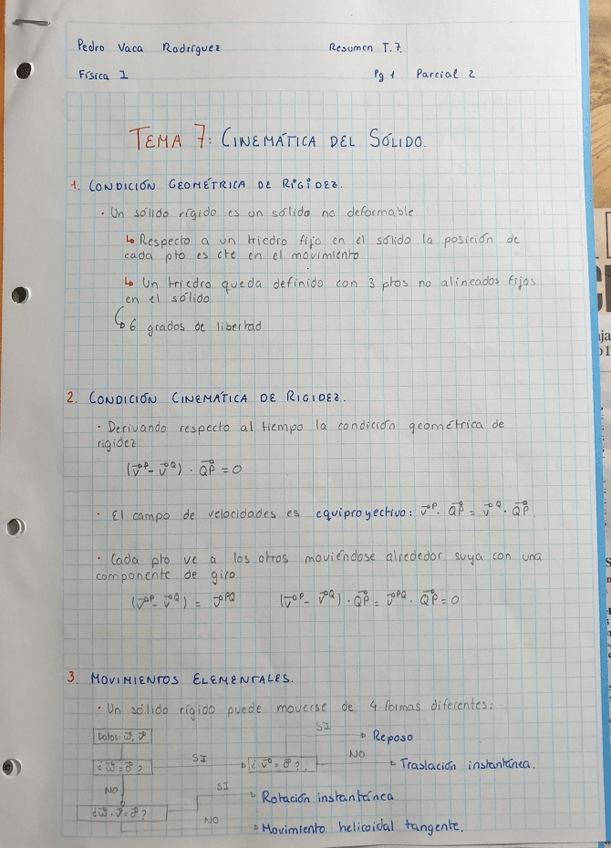 Pedro Vaca Rodríguez
Resumen T.7.
Física 1
Pg 1 Parcial 2
TEMA 7: CINEMÁTICA DEL SÓLIDO.
1. CONDICIÓN GEOMÉTRICA DE RIGIDEZ.
· Un sólido rígido es un sólido no deformable
↳ Respecto a un triedro fijo en el sólido la posición de
cada pto es cte en el movimiento
↳ Un triedro queda definido con 3 ptos no alineados fijos
en el sólido
↳ 6 grados de libertad
2. CONDICIÓN CINEMÁTICA DE RIGIDEZ.
· Derivando respecto al tiempo la condición geométrica de
rigidez
(v⃗ᴾ - v⃗Q) · QP⃗ = 0
· El campo de velocidades es equiproyectivo: v⃗ᴾ · QP⃗ = v⃗Q · QP⃗
· Cada pto ve a los otros moviéndose alrededor suya con una
componente de giro
(v⃗ᴾ - v⃗Q) = v⃗PQ (v⃗ᴾ - v⃗Q) · QP⃗ = v⃗PQ · QP⃗ = 0
3. MOVIMIENTOS ELEMENTALES.
· Un sólido rígido puede moverse de 4 formas diferentes:
Datos: ω⃗, v⃗
SI
Reposo
¿ω⃗ = 0⃗?
SI
¿v⃗ = 0⃗?
NO
Traslación instantánea.
NO
SI
Rotación instantánea
¿ω⃗ · v⃗ = 0⃗?
NO
Movimiento helicoidal tangente.